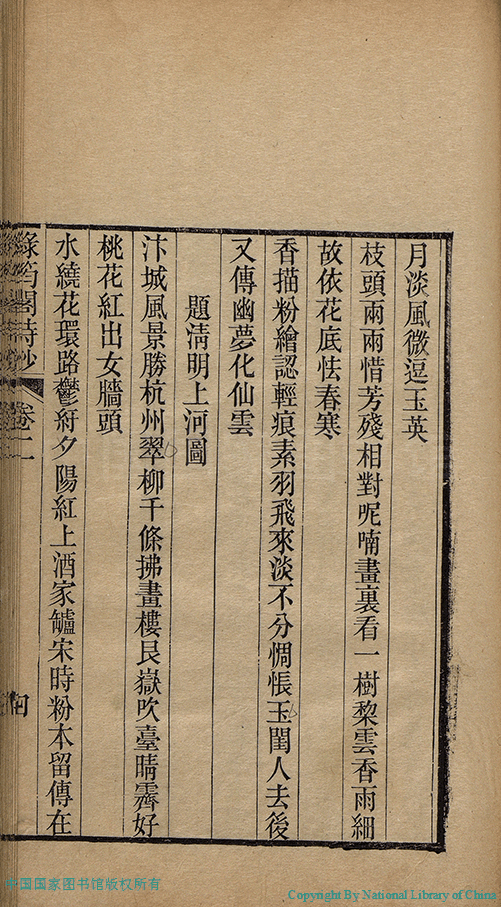 月淡風微逗玉英
枝頭兩兩惜芳殘相對呢喃畫裏看一樹棃雲香雨細
故依花底怯春寒
香描粉繪認輕痕素羽飛來淡不分惆悵玉閨人去後
又傳幽夢化仙雲
題淸明上河圖
汴城風景勝杭州翠柳千條拂畫樓艮嶽吹臺晴霽好
桃花紅出女牆頭
水繞花環路鬱紆夕陽紅上酒家罏宋時粉本留傳在
綠筠閣詩鈔
卷二
中国国家图书馆版权所有
Copyright By National Library of China